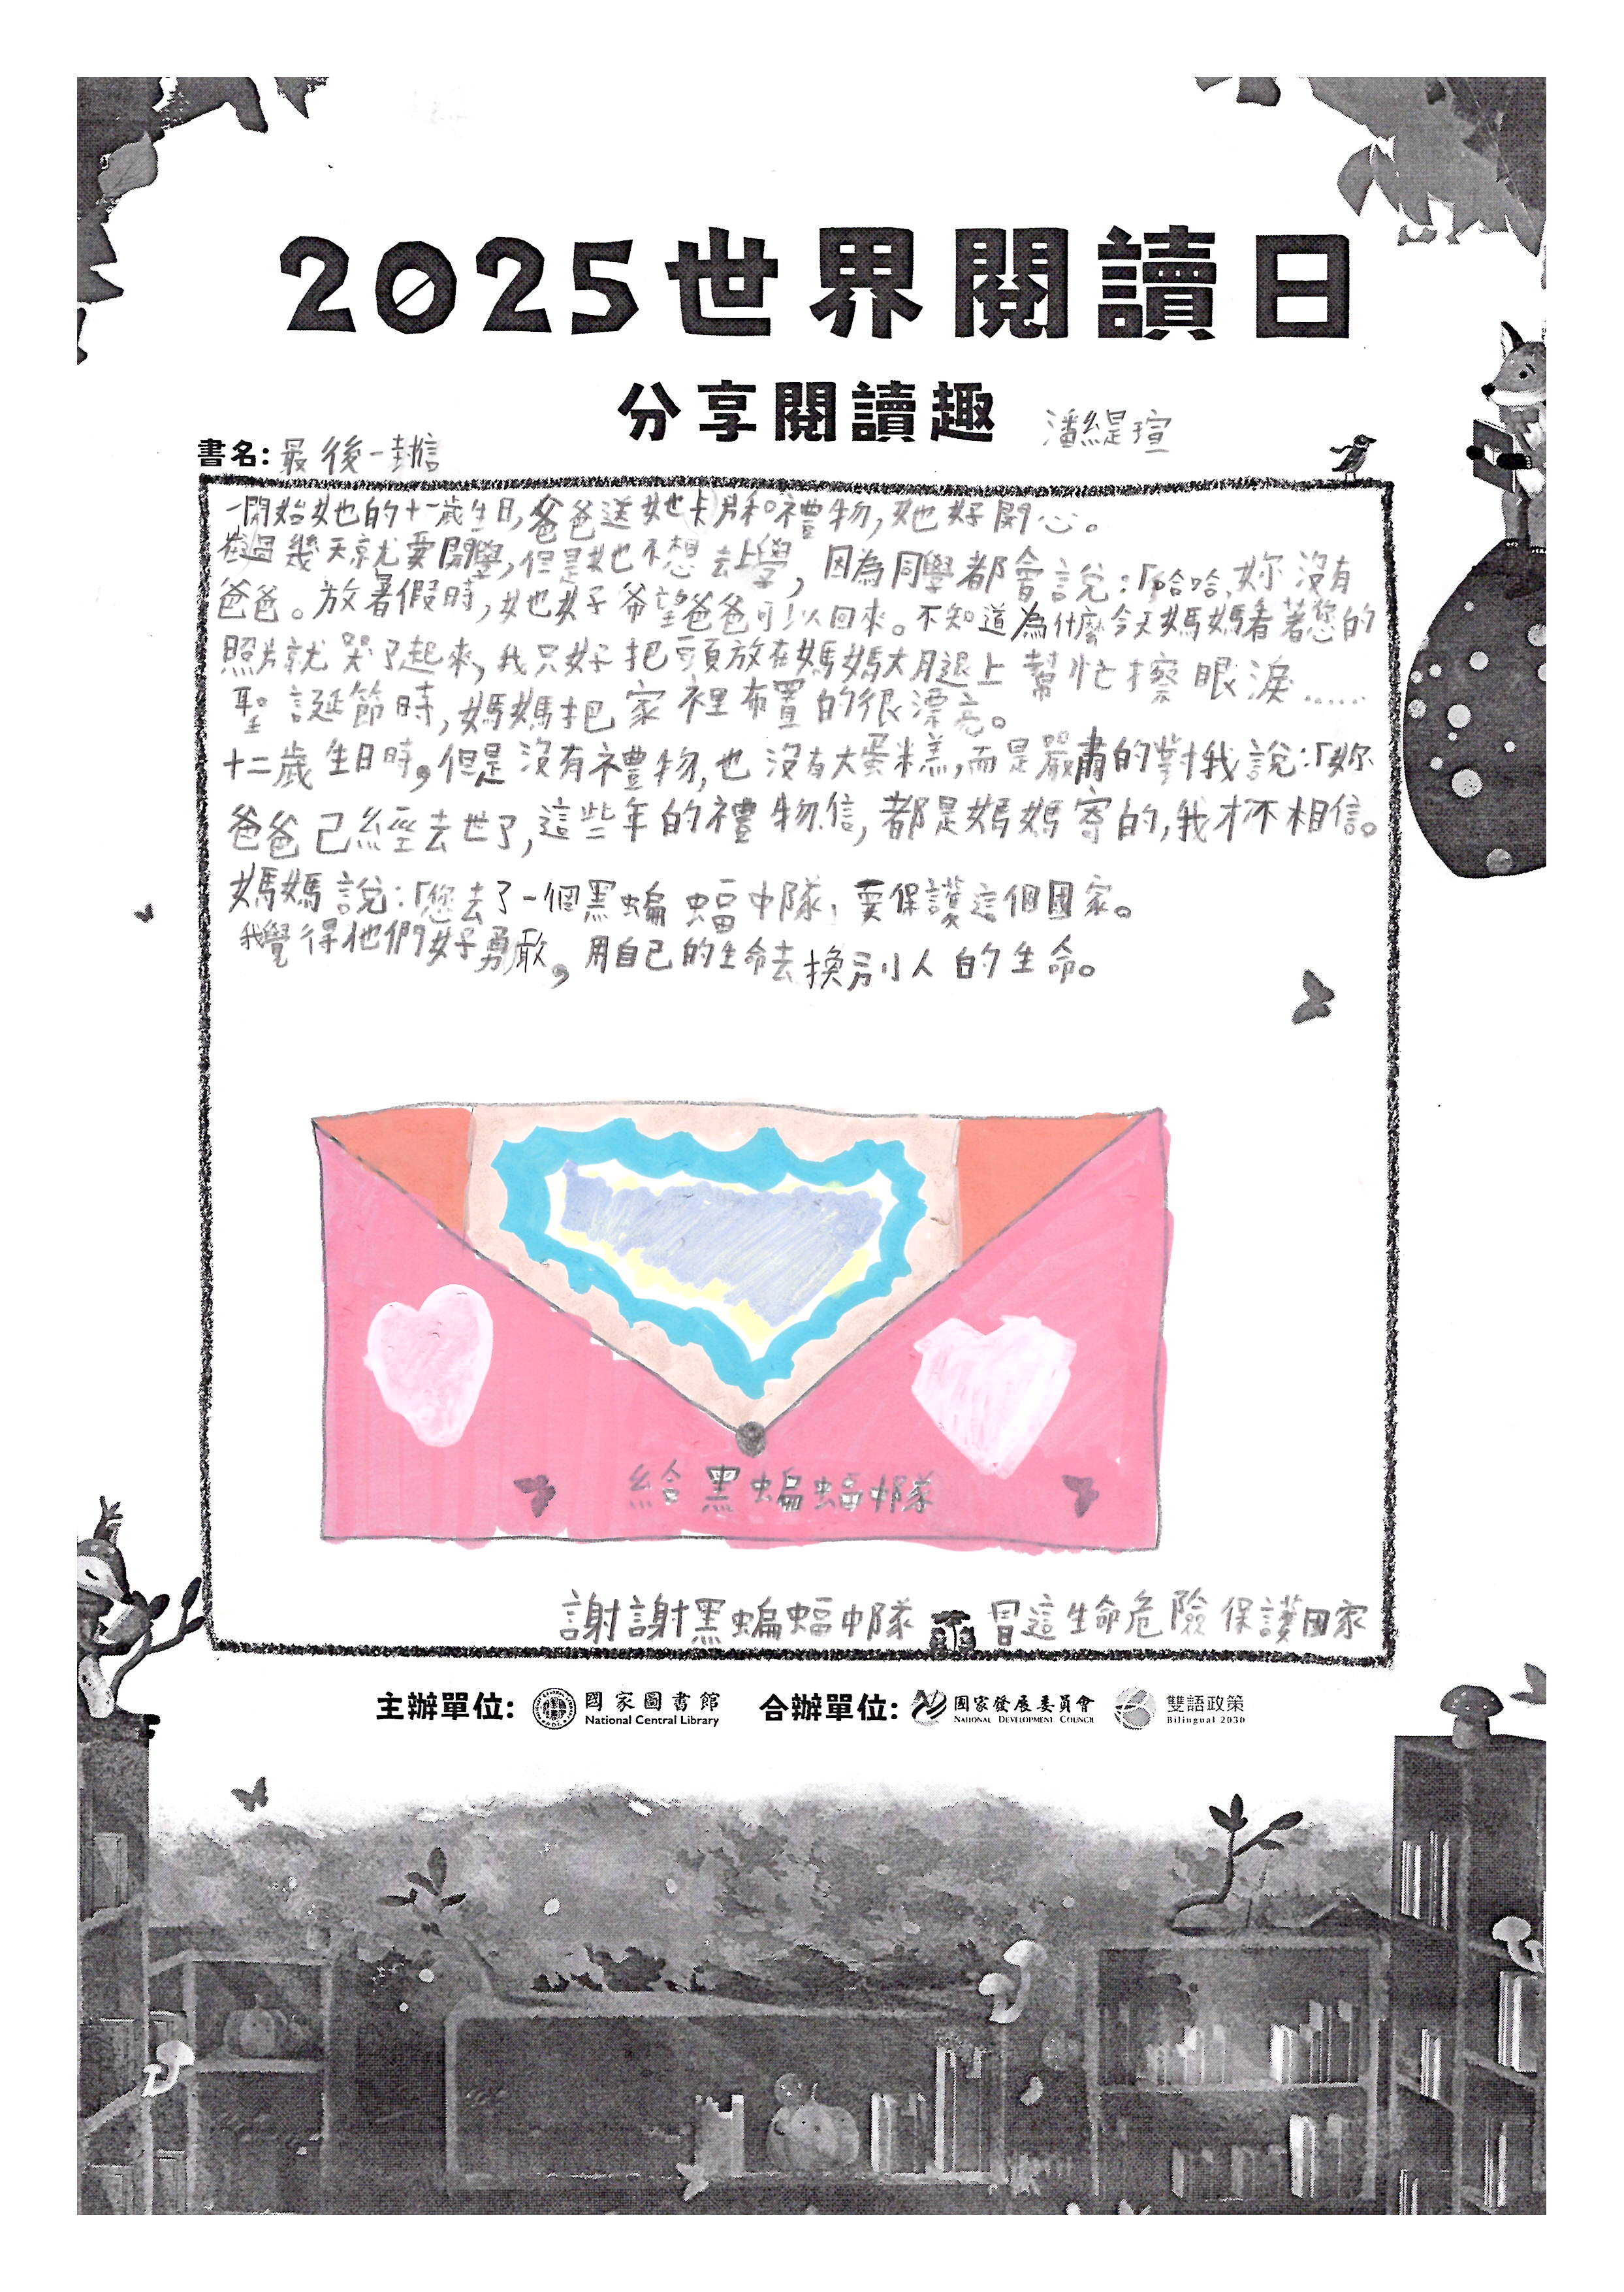 2025世界閱讀日
分享閱讀趣
潘緹瑄
書名:最後一封信
一開始她的十一歲生日,爸爸送她卡片和禮物,她好開心。
在過幾天就要開學,但是她不想去上學,因為同學都會說:「哈哈,妳沒有
爸爸。放暑假時,她好希望爸爸可以回來。不知道為什麼今天媽媽看著您的
照片就哭了起來,我只好把頭放在媽媽大腿上幫忙擦眼淚……
聖誕節時,媽媽把家裡布置的很漂亮。
十二歲生日時,但是沒有禮物,也沒有大蛋糕,而是嚴肅的對我說:「妳
爸爸已經去世了,這些年的禮物信,都是媽媽寄的,我才不相信。
媽媽說:「您去了一個黑蝙蝠中隊,要保護這個國家。
我覺得他們好勇敢,用自己的生命去換別人的生命。
給黑蝙蝠中隊
謝謝黑蝙蝠中隊冒這生命危險保護國家
主辦單位: 國家圖書館 National Central Library 合辦單位: 國家發展委員會 National Development Council 雙語政策 Bilingual 2030